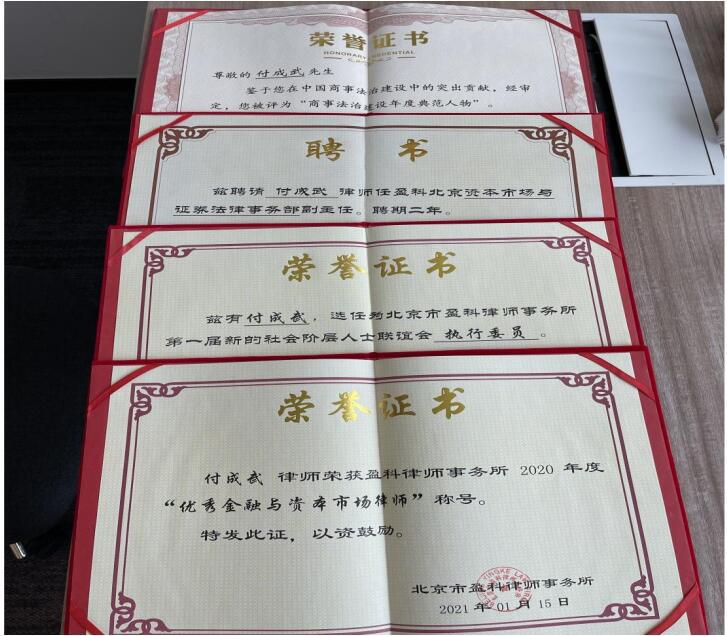 荣誉证书
HONORARY CREDENTIAL
尊敬的 付成武 先生
鉴于您在中国商事法治建设中的突出贡献，经审
定，您被评为“商事法治建设年度典范人物”。
聘 书
兹聘请 付成武 律师任盈科北京资本市场与
证券法律事务部副主任。聘期二年。
荣誉证书
兹有付成武，选任为北京市盈科律师事务所
第一届新的社会阶层人士联谊会 执行委员 。
荣誉证书
付成武 律师荣获盈科律师事务所 2020 年度
“优秀金融与资本市场律师”称号。
特发此证，以资鼓励。
北京市盈科律师事务所
2021 年 01 月 15 日